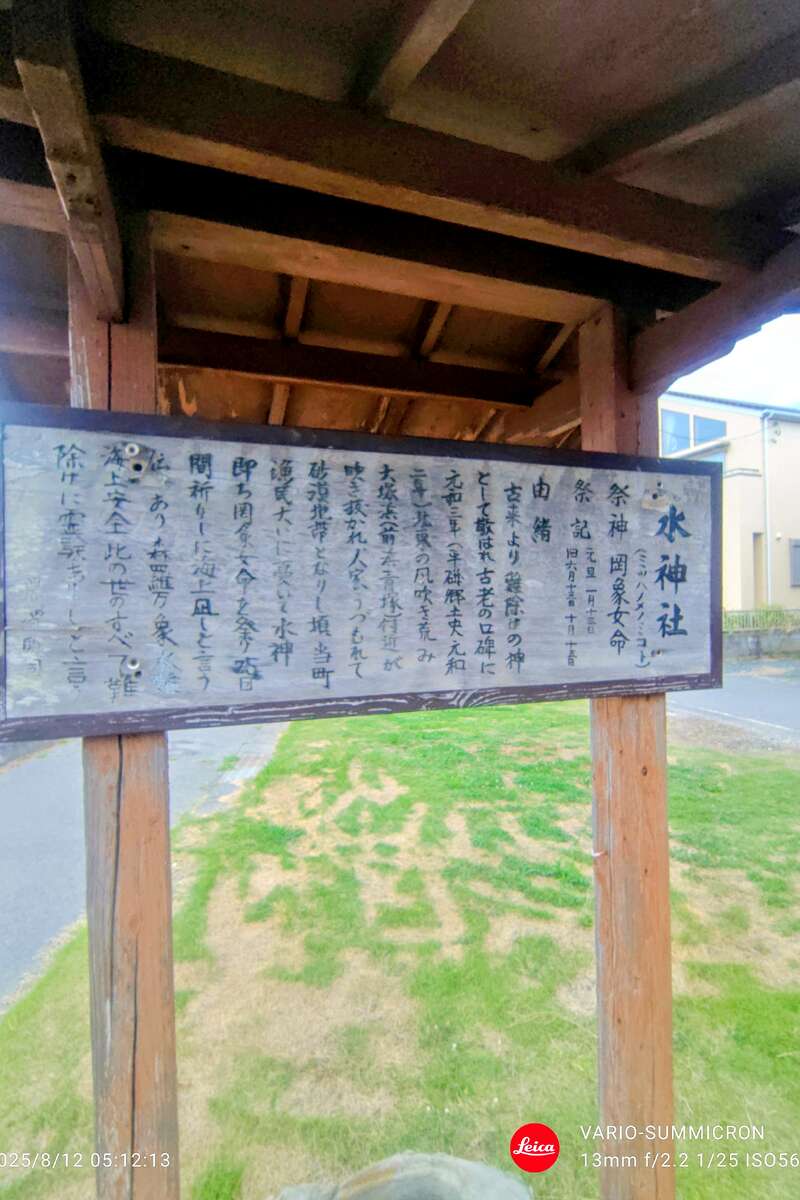 水神社
(ミツハノメノミコト)
祭神 岡象女命
祭記 元旦 一月十三日
旧六月十三日 十月十三日
由緒
古来より難除けの神
として敬はれ古老の口碑に
元和三年(平磯郷土史元和
二年)の風吹き荒み
大塚浜(前 青塚付近が
吹き抜かれ人家うづもれて
砂漠地帯となりし頃当町
漁民大いに水神
即ち岡象女命を祭り
間祈りしに海上凪しと言う
伝あり森羅万象
海上安全此の世のすべて難
除けに霊と言う
Leica
VARIO-SUMMICRON
13mm f/2.2 1/25 ISO56
025/8/12 05:12:13